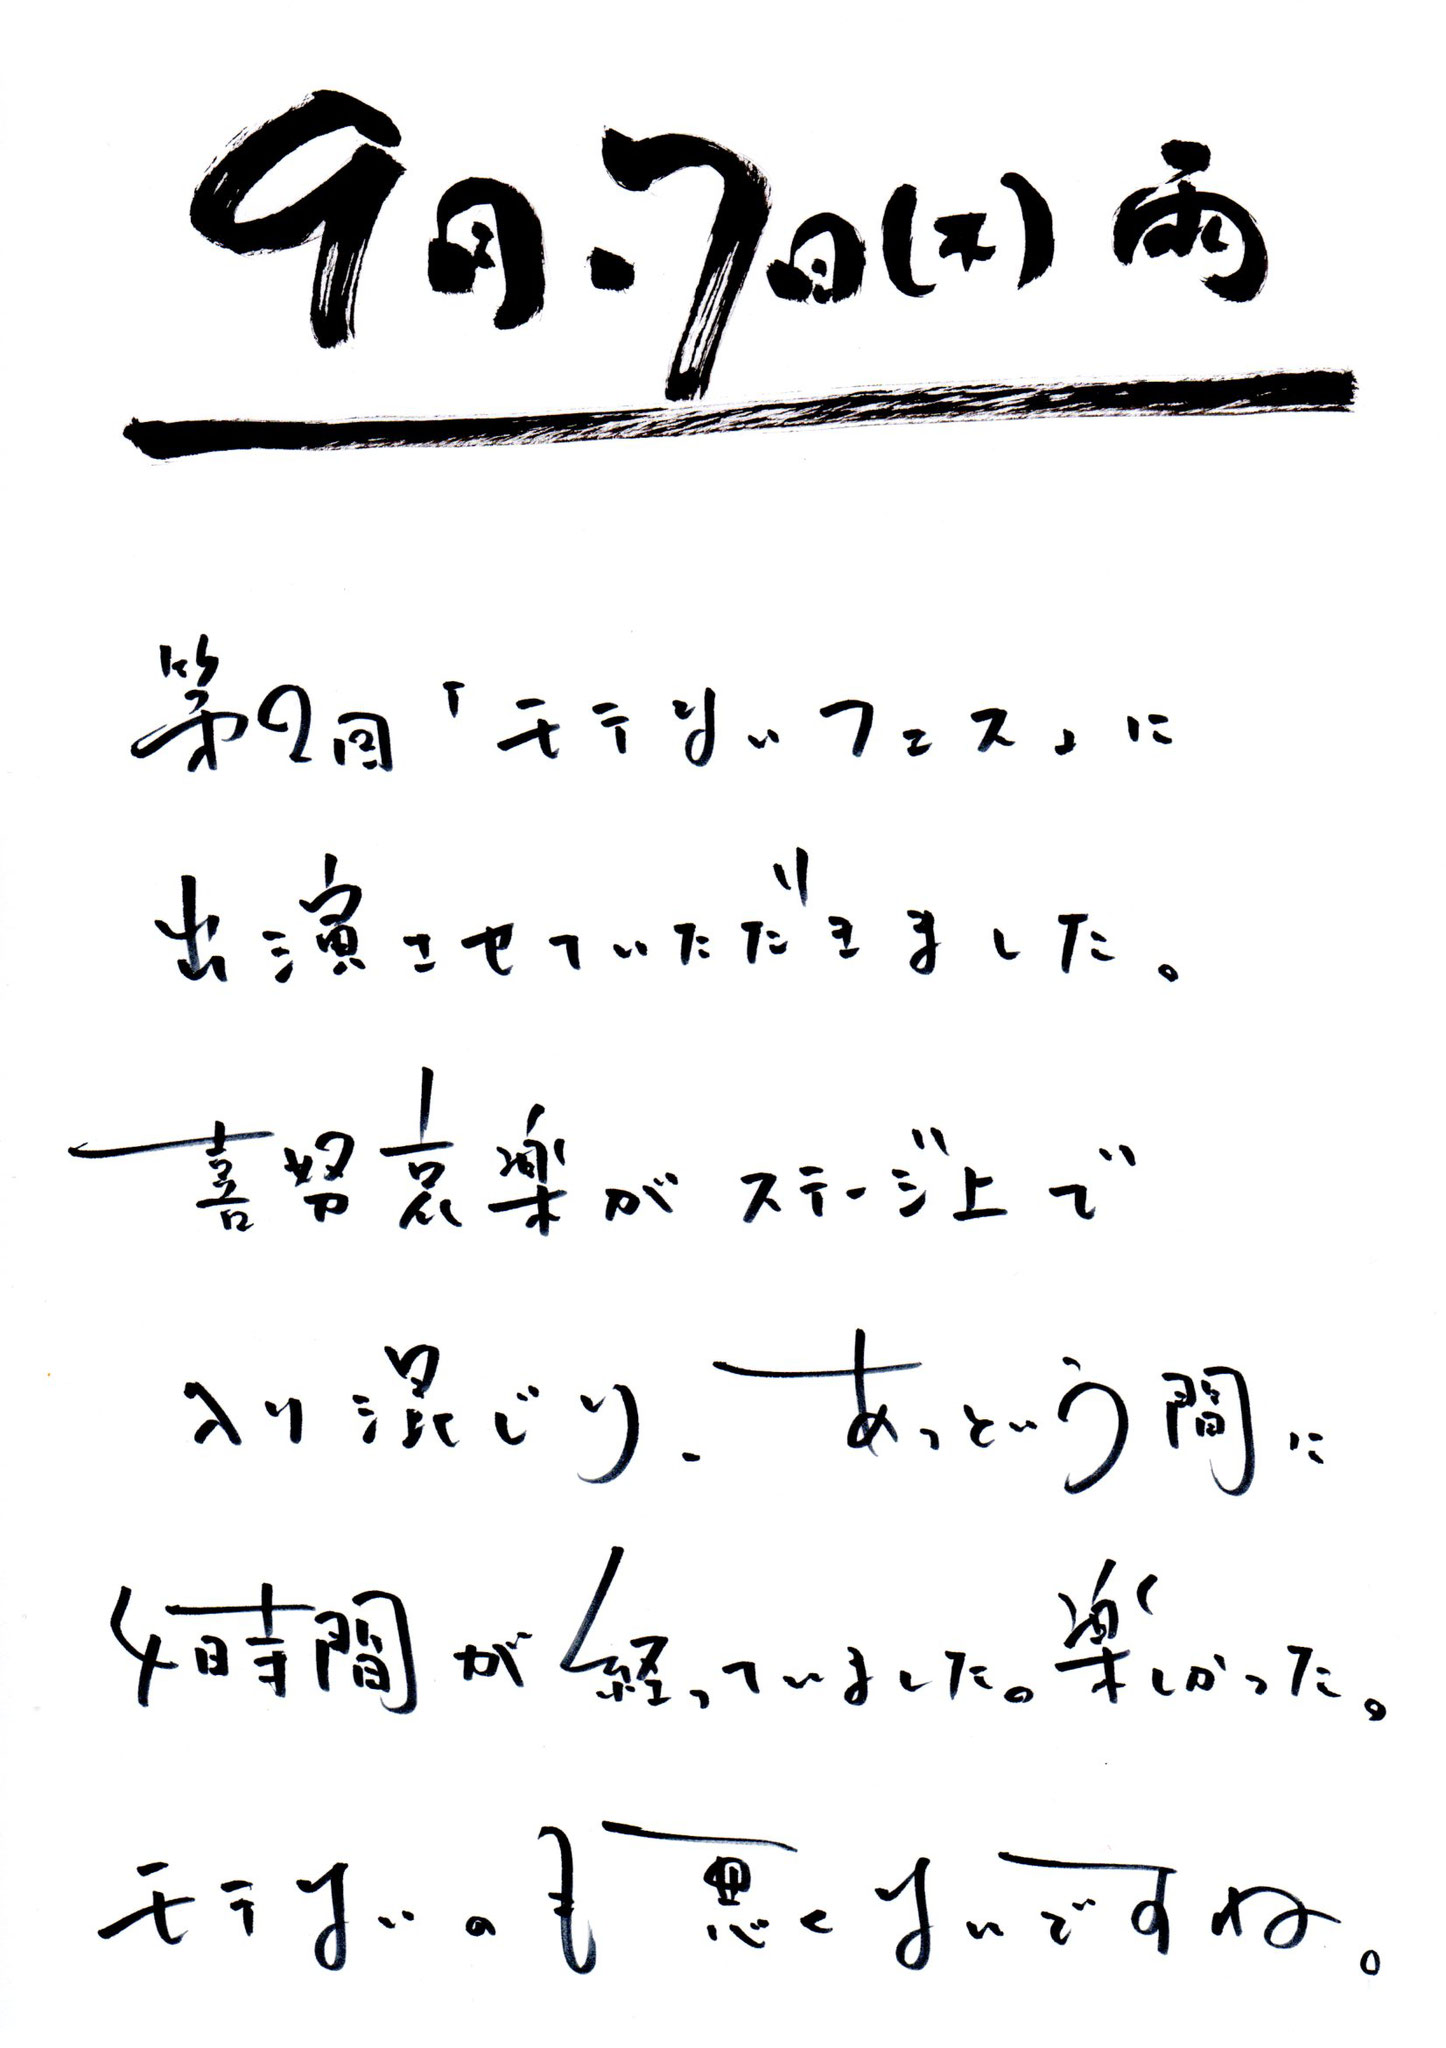 9月.7日(木)雨
第2回「モテないフェス」に
出演させていただきました。
喜怒哀楽がステージ上で
入り混じり、あっという間に
4時間が経っていました。楽しかった。
モテないのも悪くないですね。